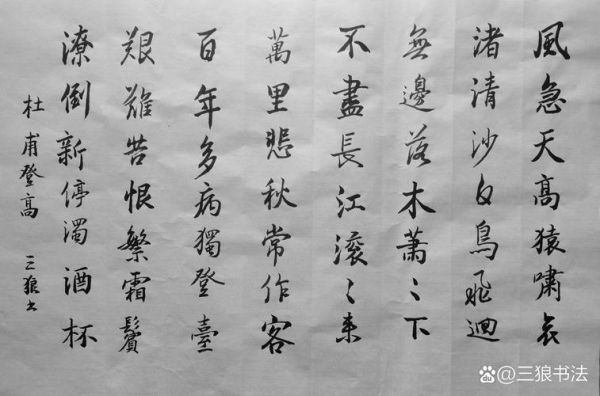 風急天高猿嘯哀
渚清沙白鳥飛迴
無邊落木蕭〻下
不盡長江滾〻來
萬里悲秋常作客
百年多病獨登臺
艱難苦恨繁霜鬢
潦倒新停濁酒杯
杜甫登高 三狼书
@三狼书法